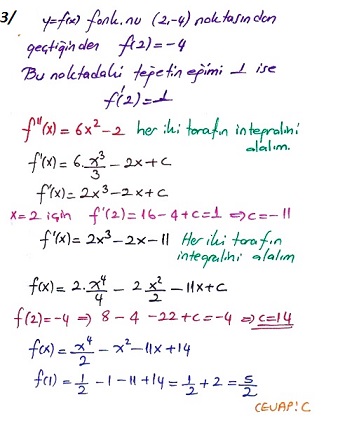 3/ y=f(x) fonk.nu (2,-4) noktasından
geçtiğinden f(2)=-4
Bu noktadaki teğetin eğimi 1 ise
f'(2)=1
f''(x)=6x²-2 her iki tarafın integralini alalım.
f'(x)=6.x³/3-2x+c
f'(x)=2x³-2x+c
x=2 için f'(2)=16-4+c=1 ⇒c=-11
f'(x)=2x³-2x-11 Her iki tarafın
integralini alalım
f(x)=2.x⁴/4-2x²/2-11x+c
f(2)=-4 ⇒ 8-4-22+c=-4 ⇒c=14
f(x)=x⁴/2-x²-11x+14
f(1)=1/2-1-11+14=1/2+2=5/2
CEVAP: C